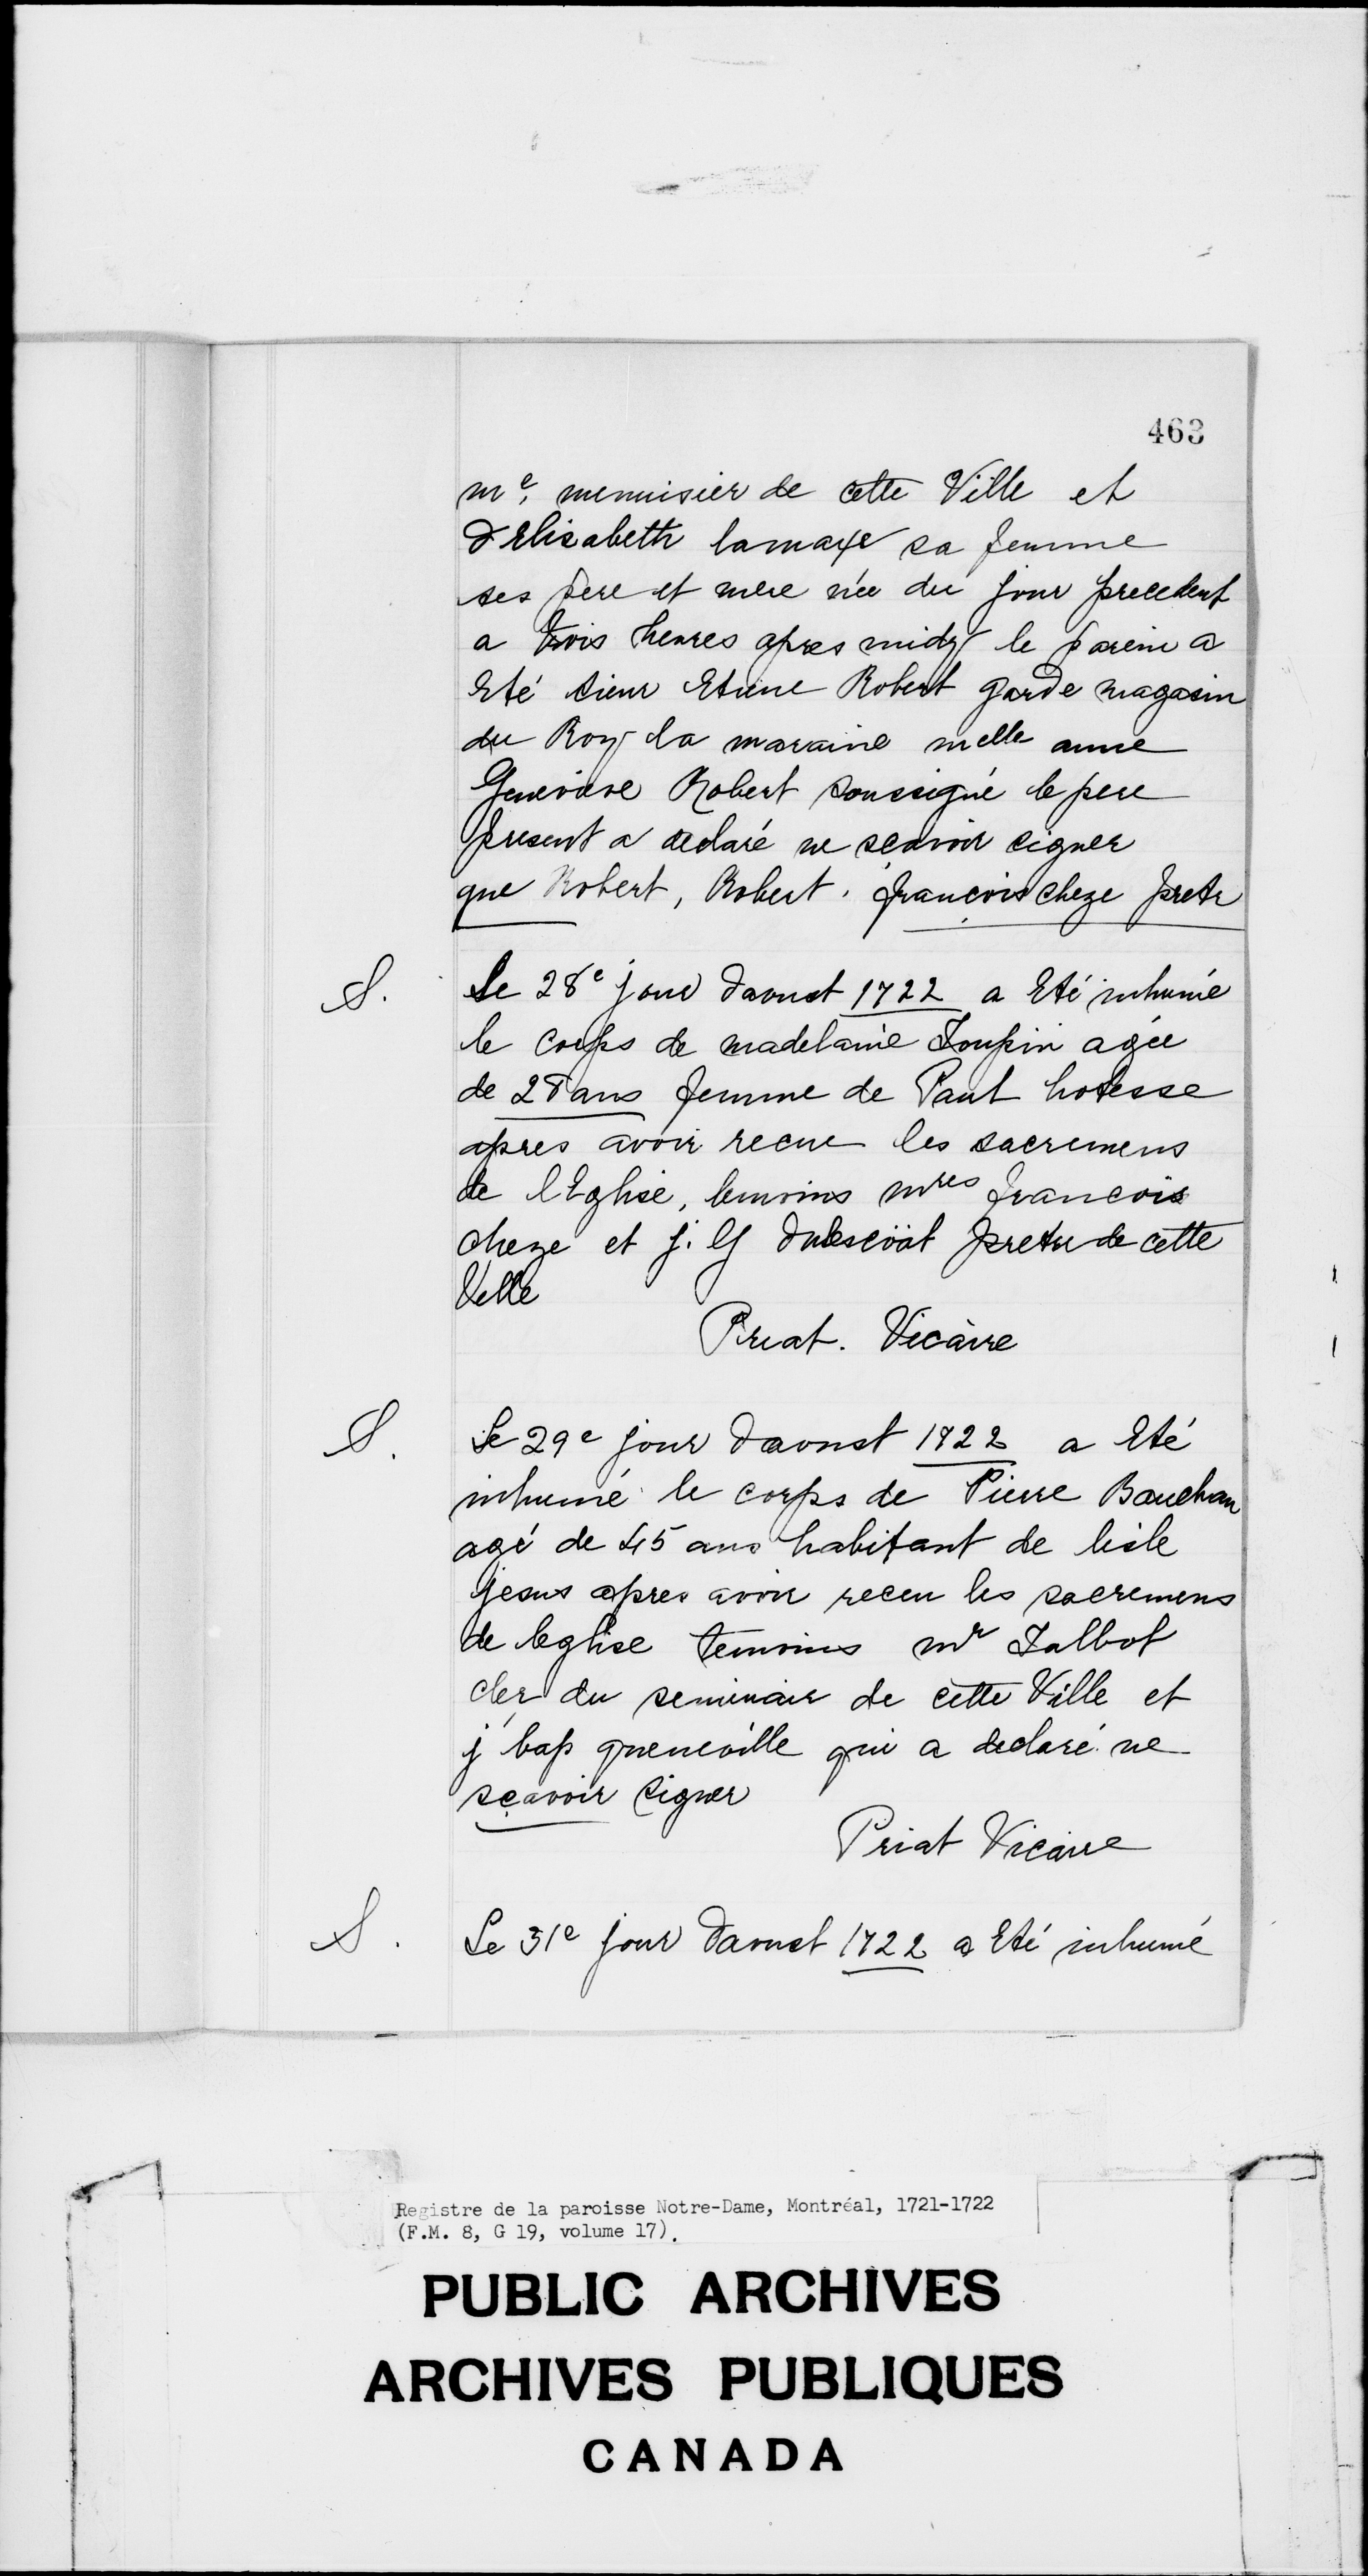 463
me, menuisier de cette Ville et
d Elisabeth lamaxe sa femme
ses pere et mere née du jour precedent
a trois heures apres midy le parein a
Eté sieur Etiene Robert garde magasin
du Roy la maraine melle anne
Genevieve Robert soussigné le pere
present a declaré ne scavoir signer
que Robert, Robert. françois cheze pretr
S. Le 28e jour daoust 1722 a Eté inhumé
le corps de madelaine Toupin agée
de 28 ans femme de Paul hotesse
apres avoir recue les sacremens
de lEglise, temoins mres francois
cheze et j. G dulescöat pretre de cette
Ville
Priat. Vicaire
S. Le 29e jour daoust 1722 a Eté
inhumé le corps de Pierre Bauchan
agé de 45 ans habitant de lisle
jesus apres avoir receu les sacremens
de leglise temoins mr Talbot
cler du seminair de cette Ville et
j bap queneville qui a declaré ne
sçavoir signer
Priat Vicaire
S. Le 31e jour daoust 1722 a Eté inhumé
Registre de la paroisse Notre-Dame, Montréal, 1721-1722
(F.M. 8, G 19, volume 17).
PUBLIC ARCHIVES
ARCHIVES PUBLIQUES
CANADA